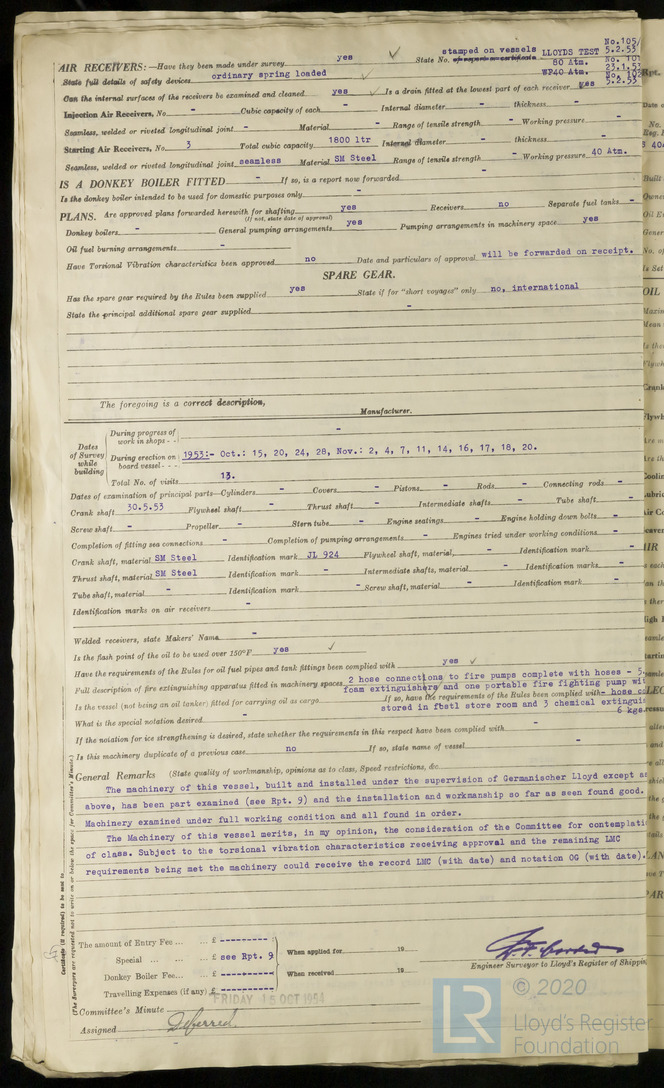 AIR RECEIVERS:—Have they been made under survey yes State No. stamped on vessels LLOYDS TEST No.105/ 5.2.53
State full details of safety devices ordinary spring loaded 80 Atm. 23.1.53
WP40 Atm. 5.2.53
Can the internal surfaces of the receivers be examined and cleaned yes Is a drain fitted at the lowest part of each receiver yes
Injection Air Receivers, No. - Cubic capacity of each - Internal diameter - thickness -
Seamless, welded or riveted longitudinal joint - Material - Range of tensile strength - Working pressure -
Starting Air Receivers, No. 3 Total cubic capacity 1800 ltr Internal diameter - thickness -
Seamless, welded or riveted longitudinal joint seamless Material SM Steel Range of tensile strength - Working pressure 40 Atm.
IS A DONKEY BOILER FITTED - If so, is a report now forwarded -
Is the donkey boiler intended to be used for domestic purposes only -
PLANS. Are approved plans forwarded herewith for shafting yes Receivers no Separate fuel tanks -
(If not, state date of approval)
Donkey boilers - General pumping arrangements yes Pumping arrangements in machinery space yes
Oil fuel burning arrangements -
Have Torsional Vibration characteristics been approved no Date and particulars of approval will be forwarded on receipt.
SPARE GEAR.
Has the spare gear required by the Rules been supplied yes State if for "short voyages" only no, international
State the principal additional spare gear supplied -
The foregoing is a correct description,
Manufacturer.
Dates of Survey while building
During progress of work in shops - - -
During erection on board vessel - - - 1953:- Oct.: 15, 20, 24, 28, Nov.: 2, 4, 7, 11, 14, 16, 17, 18, 20.
Total No. of visits 13.
Dates of examination of principal parts—Cylinders - Covers - Pistons - Rods - Connecting rods -
Crank shaft 30.5.53 Flywheel shaft - Thrust shaft - Intermediate shafts - Tube shaft -
Screw shaft - Propeller - Stern tube - Engine seatings - Engine holding down bolts -
Completion of fitting sea connections - Completion of pumping arrangements - Engines tried under working conditions -
Crank shaft, material SM Steel Identification mark JL 924 Flywheel shaft, material, - Identification mark -
Thrust shaft, material SM Steel Identification mark - Intermediate shafts, material - Identification marks -
Tube shaft, material - Identification mark - Screw shaft, material - Identification mark -
Identification marks on air receivers -
Welded receivers, state Makers' Name -
Is the flash point of the oil to be used over 150°F. yes
Have the requirements of the Rules for oil fuel pipes and tank fittings been complied with yes
Full description of fire extinguishing apparatus fitted in machinery spaces 2 hose connections to fire pumps complete with hoses - 5
foam extinguishers and one portable fire fighting pump wi
Is the vessel (not being an oil tanker) fitted for carrying oil as cargo If so, have the requirements of the Rules been complied with - hose
stored in foctl store room and 3 chemical extingui
What is the special notation desired - 6 kgs.
If the notation for ice strengthening is desired, state whether the requirements in this respect have been complied with -
Is this machinery duplicate of a previous case no If so, state name of vessel -
General Remarks (State quality of workmanship, opinions as to class, Speed restrictions, &c.
The machinery of this vessel, built and installed under the supervision of Germanischer Lloyd except as
above, has been part examined (see Rpt. 9) and the installation and workmanship so far as seen found good.
Machinery examined under full working condition and all found in order.
The Machinery of this vessel merits, in my opinion, the consideration of the Committee for contemplati
of class. Subject to the torsional vibration characteristics receiving approval and the remaining LMC
requirements being met the machinery could receive the record LMC (with date) and notation OG (with date).
The amount of Entry Fee ... ... £ ---------
Special ... ... ... £ see Rpt. 9 When applied for 19
Donkey Boiler Fee... ... £ --------- When received 19
Travelling Expenses (if any) £ ---------
Engineer Surveyor to Lloyd's Register of Shippin
FRIDAY 15 OCT 1954
Committee's Minute
Assigned Deferred.
LR
© 2020
Lloyd's Register
Foundation